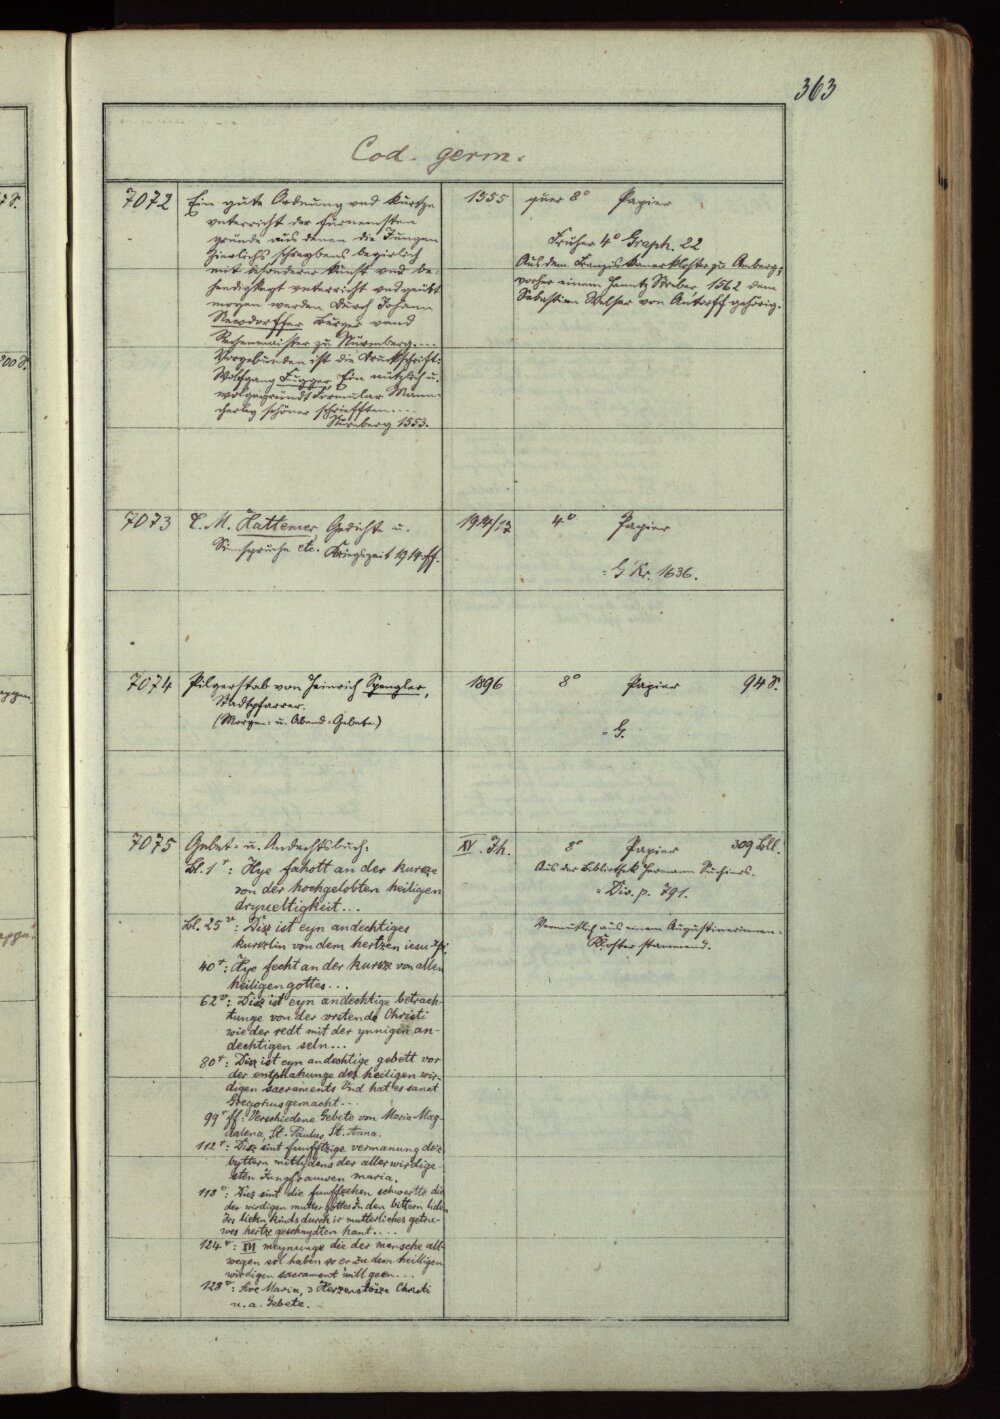 363
Cod. germ.
7072 Ein gute Ordnung vnd kurtze 1555 quer 8° Papier
vnterricht der fürnemsten
gründe aus denen die Jungen
Zierlichs schreybens begirlich
mit besonderer kunst vnd be-
hendigkeyt vnterricht vnd geübt
mögen werden durch Johann
Newdorffer Burger vnnd
Rechenmaister zu Nürmberg....
Vorgebunden ist die Druckschrift:
Wolfgang Fugger, Ein nützlich u.
wolgegründt Formular Mann-
cherley schöner schriefften....
Nürnberg 1553.
Früher 4° Graph. 22
Aus dem Franziskanerkloster zu Amberg;
vorher einem 1562 dem
Sebastian Welser von Antorff gehörig.
7073 C. M. Hattemer, Gedichte u. 1914/17 4° Papier
Sinsprüche etc. Kriegszeit 1914 ff.
= G Kr. 1636.
7074 Pilgerstab von Heinrich Spengler, 1896 8° Papier 94 S.
Stadtpfarrer.
(Morgen- u. Abend-Gebete.)
= G.
7075 Gebet- u. Andachtsbuch: XV. Jh. 8° Papier 309 Bll.
Bl. 1r: Hye fahott an der kurcze
von der hochgelobten heiligen
dryueltigkeit...
Bl. 25v: Disz ist eyn andechtiges
kurszlin von dem hertzen iesu xpi
40r: Hye fecht an der kursz von allen
heiligen gottes...
62v: Disz ist eyn andechtige betrach-
tunge von der vrstende Christi
wie der redt mit der ynnigen an-
dechtigen seln...
80r: Disz ist eyn andechtige gebett vor
der entphahunge des heiligen wir-
digen sacraments Vnd hat es sanct
Gregorius gemacht...
99r ff: Verschiedene Gebete von Maria Mag-
dalena, St. Paulus, St. Anna.
112r: Disz sint funfftzige vermanung des
byttern mitlydens der aller wirdige-
sten Jungfrauwen maria.
118v: Disz sint die funffzehen schwertte die
der wirdigen mutter gottes In den bittern lide
Irs lieben kinds durch ir mutterliches getru-
wes hertze geschnydten hant....
124v: XVI meynunge die der mensche all-
wegen sol haben so er zu dem heilligen
wirdigen sacrament will geen...
128v: Ave Maria, 3 Herzenstösze Christi
u. a. Gebete.
Aus der Bibliothek Hermann Suchiers.
= Div. p. 791.
Vermutlich aus einem Augustinerinnen-
Kloster stammend.